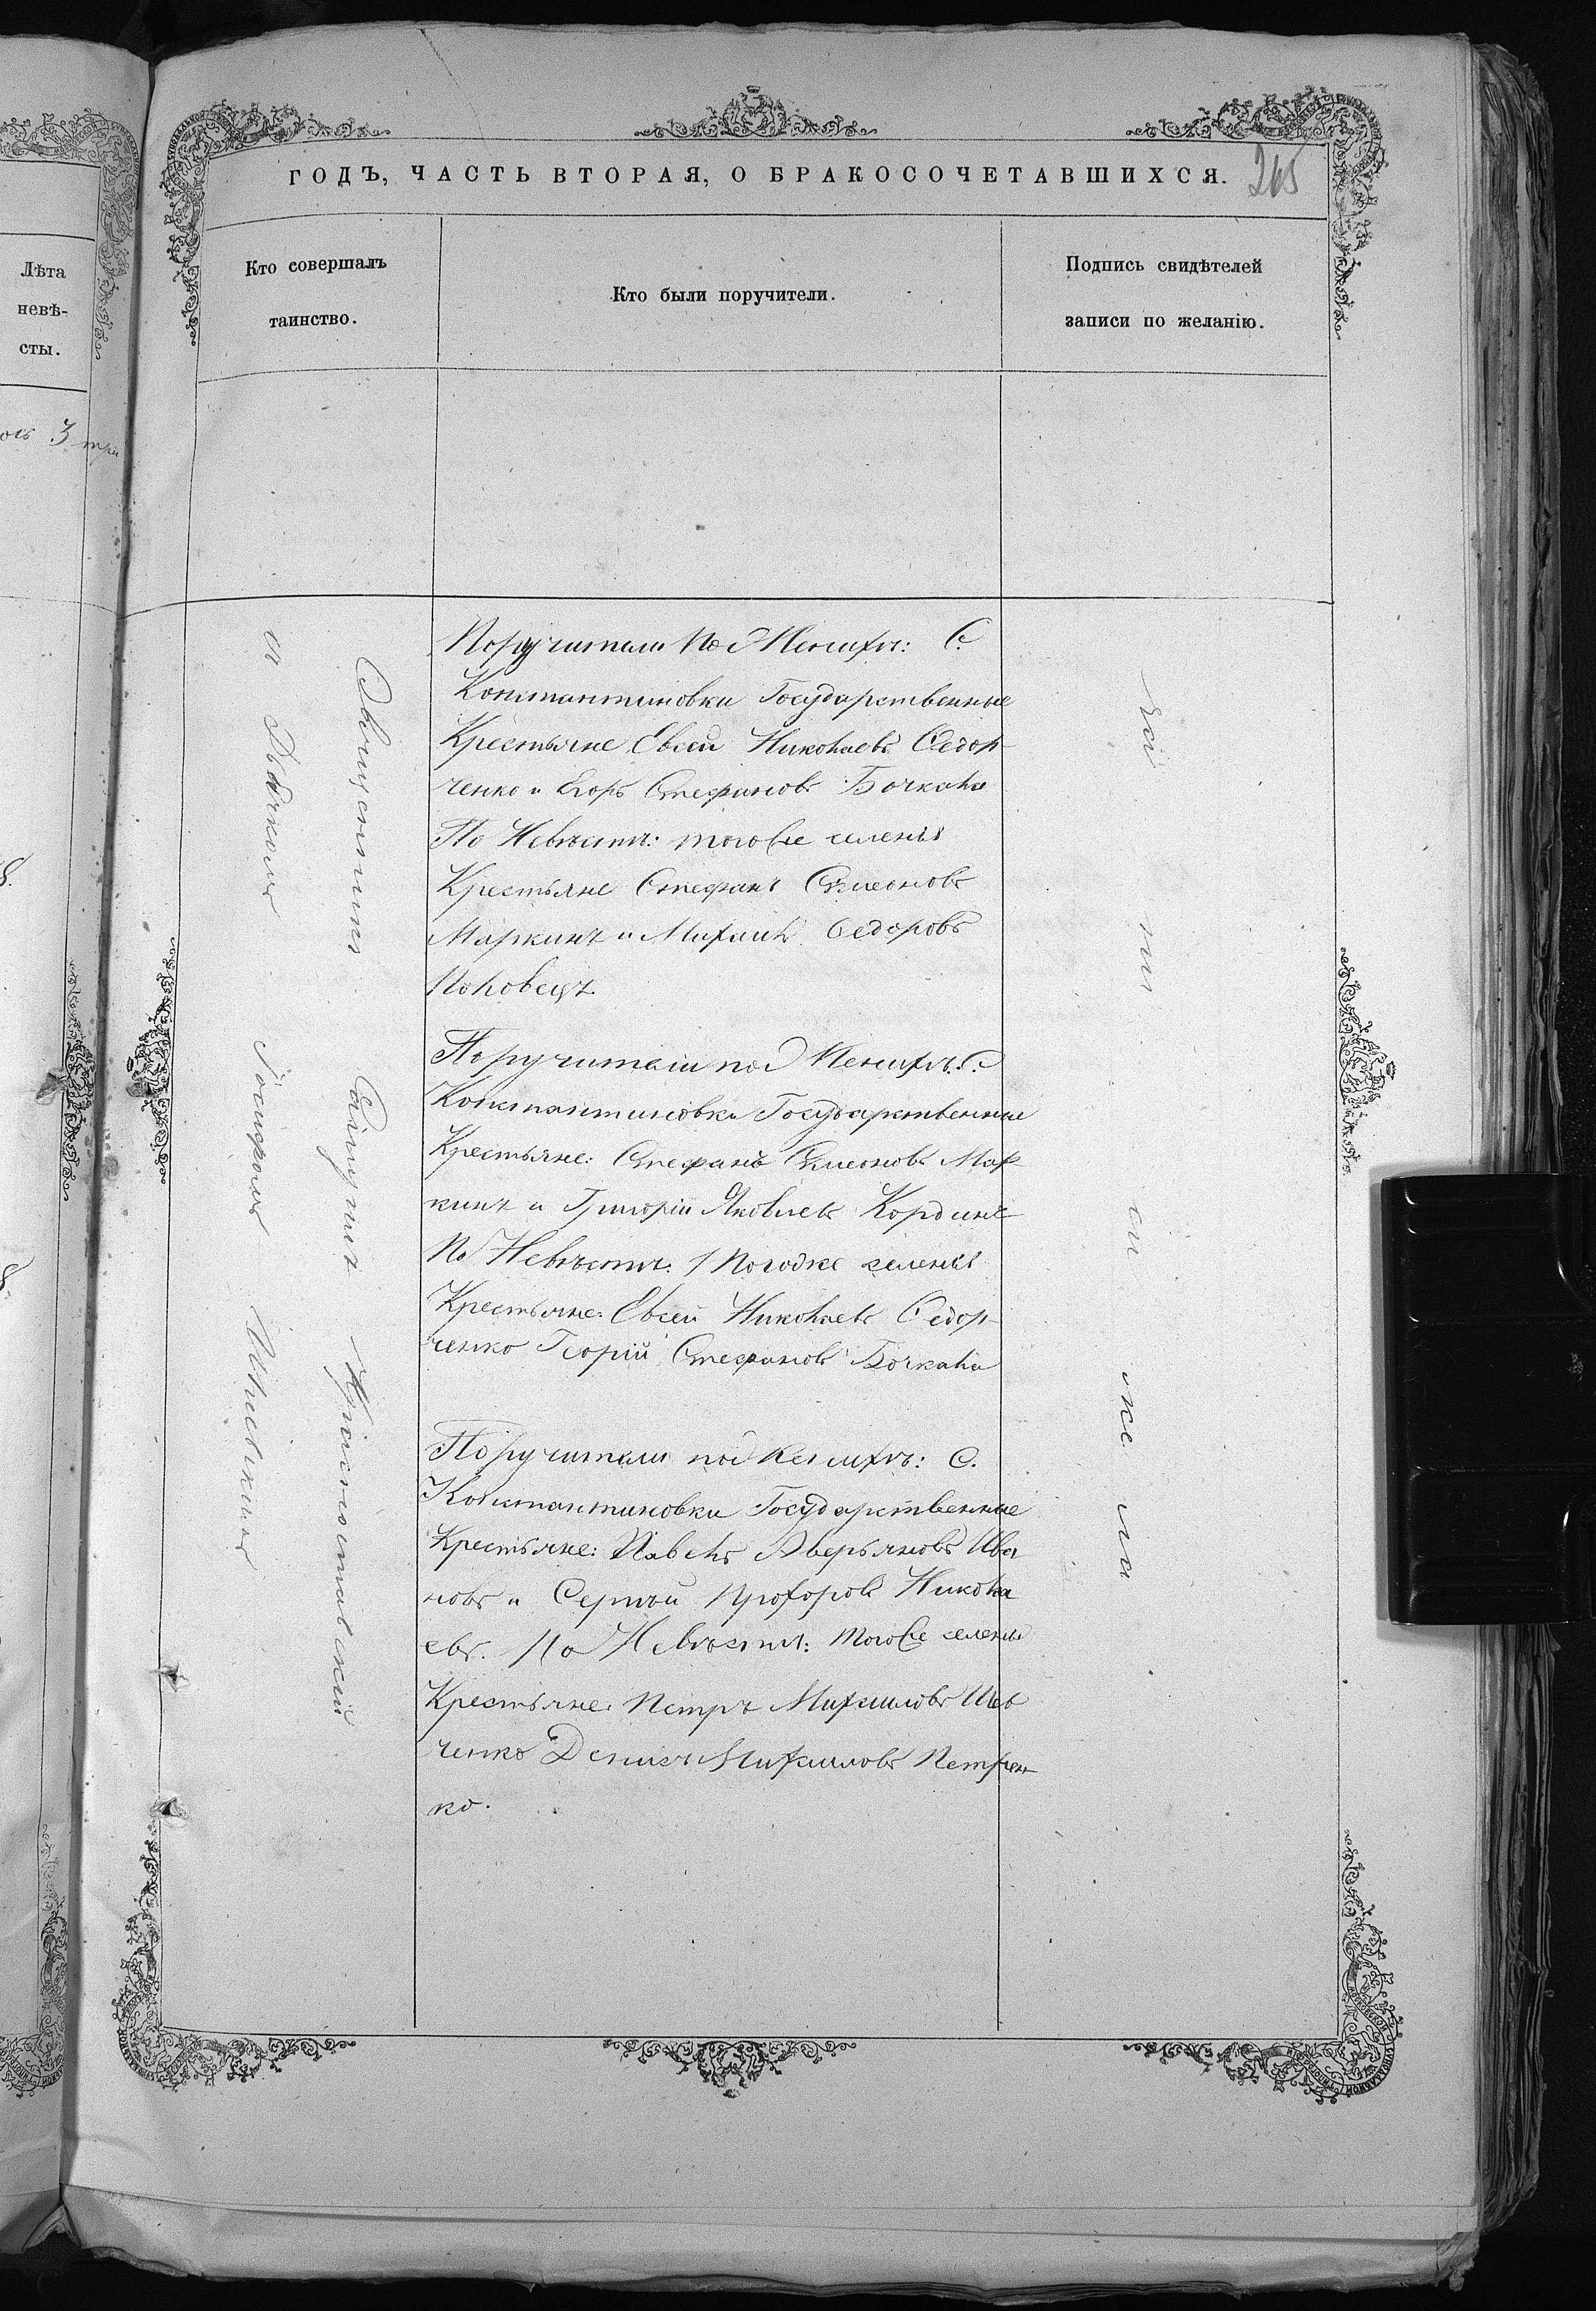 Лѣта
невѣ-
сты.
3 три
ГОДЪ, ЧАСТЬ ВТОРАЯ, О БРАКОСОЧЕТАВШИХСЯ.
265
Кто совершалъ
таинство.
Кто были поручители.
Подпись свидѣтелей
записи по желанію.
Священникъ
и Дьячкомъ
Поручители По Женихѣ: С.
Константиновки Государственные
Крестьяне Евсей Николаевъ Сѣдор-
ченко и Егоръ Стефановъ Бочкала
По Невѣстѣ: того же селенія
Крестьяне Стефанъ Симеоновъ
Маркинъ и Михаилъ Ѳедоровъ
Половецъ
Поручители по Женихѣ. С.
Константиновки Государственные
Крестьяне: Стефанъ Симеоновъ Мар-
кинъ и Григорій Яковлевъ Кординъ
По Невѣстѣ: селенія
Крестьяне: Евсей Николаевъ Сѣдор-
ченко Георгій Стефановъ Бочкала
Поручители по Женихѣ: С.
Константиновки Государственные
Крестьяне: Павелъ Аверьяновъ Ива
новъ и Сергѣй Прохоровъ Никола
евъ. По Невѣстѣ: того же селенія
Крестьяне: Петръ Михаиловъ Шев
ченко Денисъ Михаиловъ Петрен
ко.